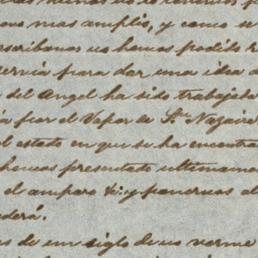 mas amplio, y como se
escribanos no hemos podido
servia para dar una idea d
del Angel ha sido trabajada
por el Vapor de St. Nazaire
el estado en que se ha encontra
hemos presentado ultimame
el amparo &c. y ponernos al
derá.
s de un siglo de un verme